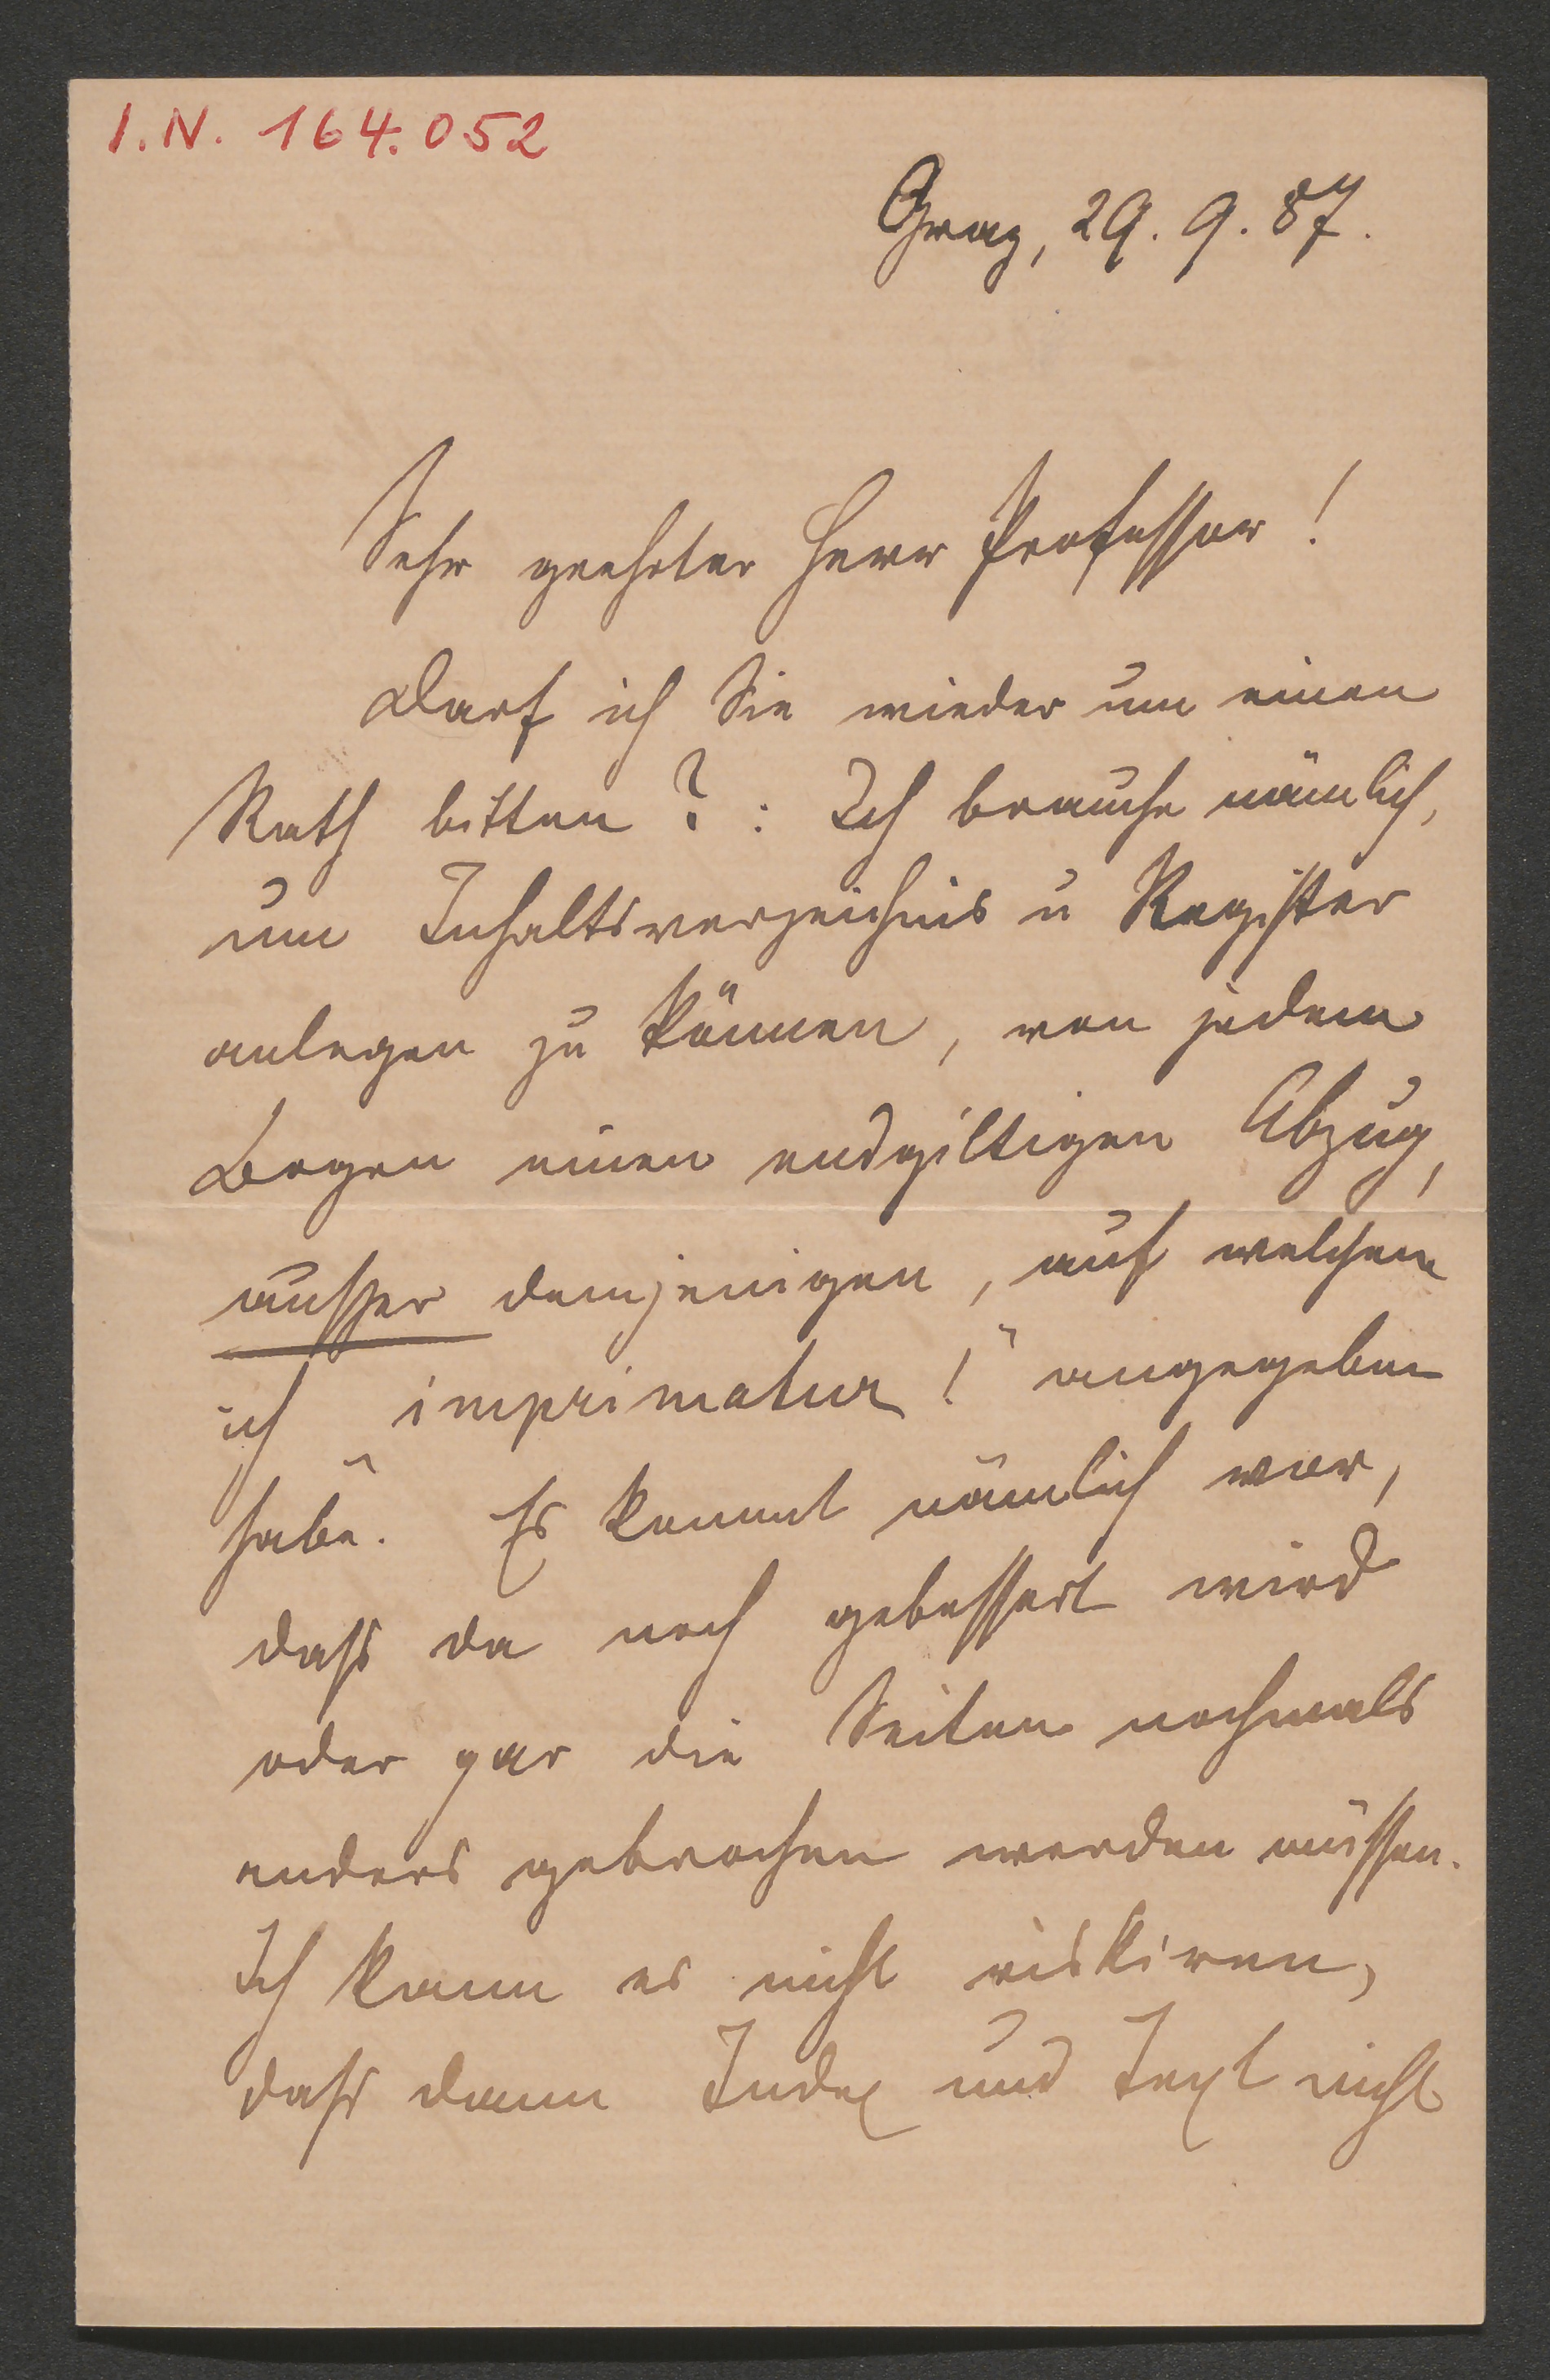 I.N. 164.052
Graz, 29. 9. 87.
Sehr geehrter Herr Professor!
Darf ich Sie wieder um einen
Rath bitten?: Ich brauche nämlich,
um Inhaltsverzeichnis u Register
anlegen zu können, von jedem
Bogen einen endgiltigen Abzug,
ausser demjenigen, auf welchem
ich „imprimatur!“ angegeben
habe. Es kommt nämlich vor,
dass da noch gebessert wird
oder gar die Seiten nochmals
anders gebrochen werden müssen.
Ich kann es nicht riskiren,
dass dann Index und Text nicht